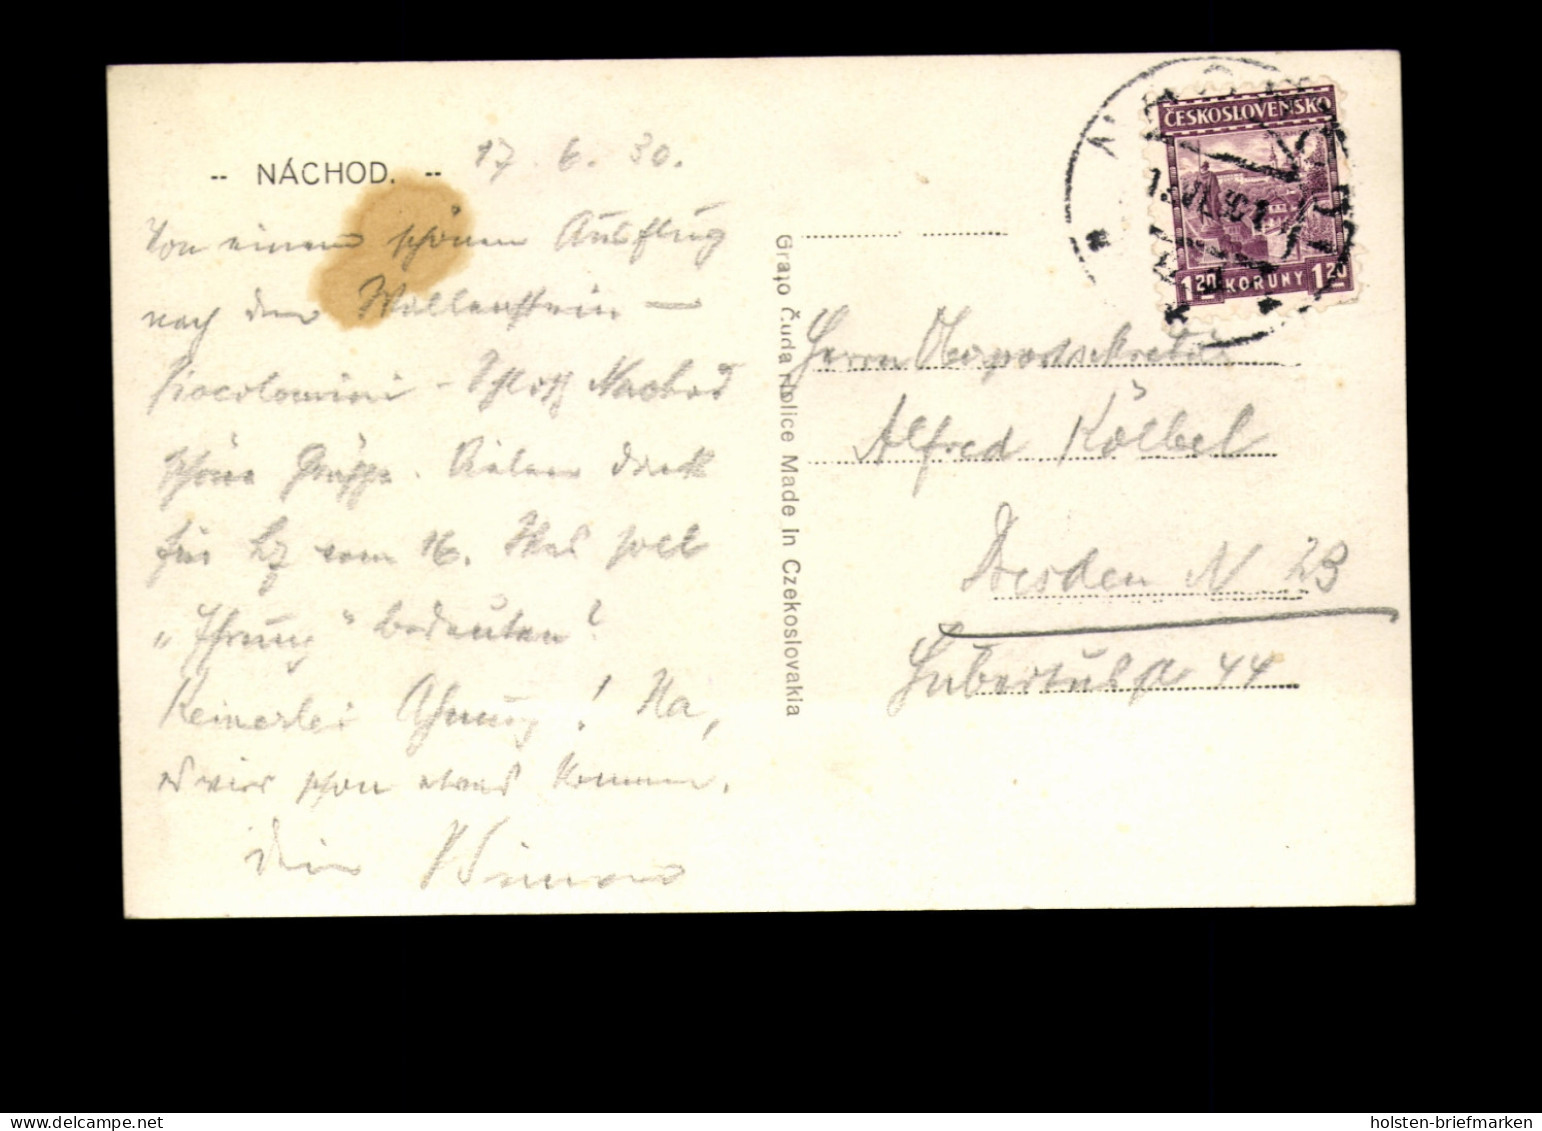 -- NÁCHOD. --
17. 6. 30.
Von einem schönen Ausflug
nach dem Wallenstein –
Piccolomini - Schloß Nachod
schöne Grüße. Vielen Dank
für vom 16. Was soll
„Ihrung“ bedeuten?
Keinerlei Ahnung! Na,
es wird schon etwas kommen.
Dein
Grafo Čuda Holice Made In Czekoslovakia
ČESKOSLOVENSKO
1 20 KORUNY 1 20
Herrn Oberpostsekretär
Alfred Kölbel
Dresden N 23
Hubertusstr 44
www.delcampe.net
holsten-briefmarken